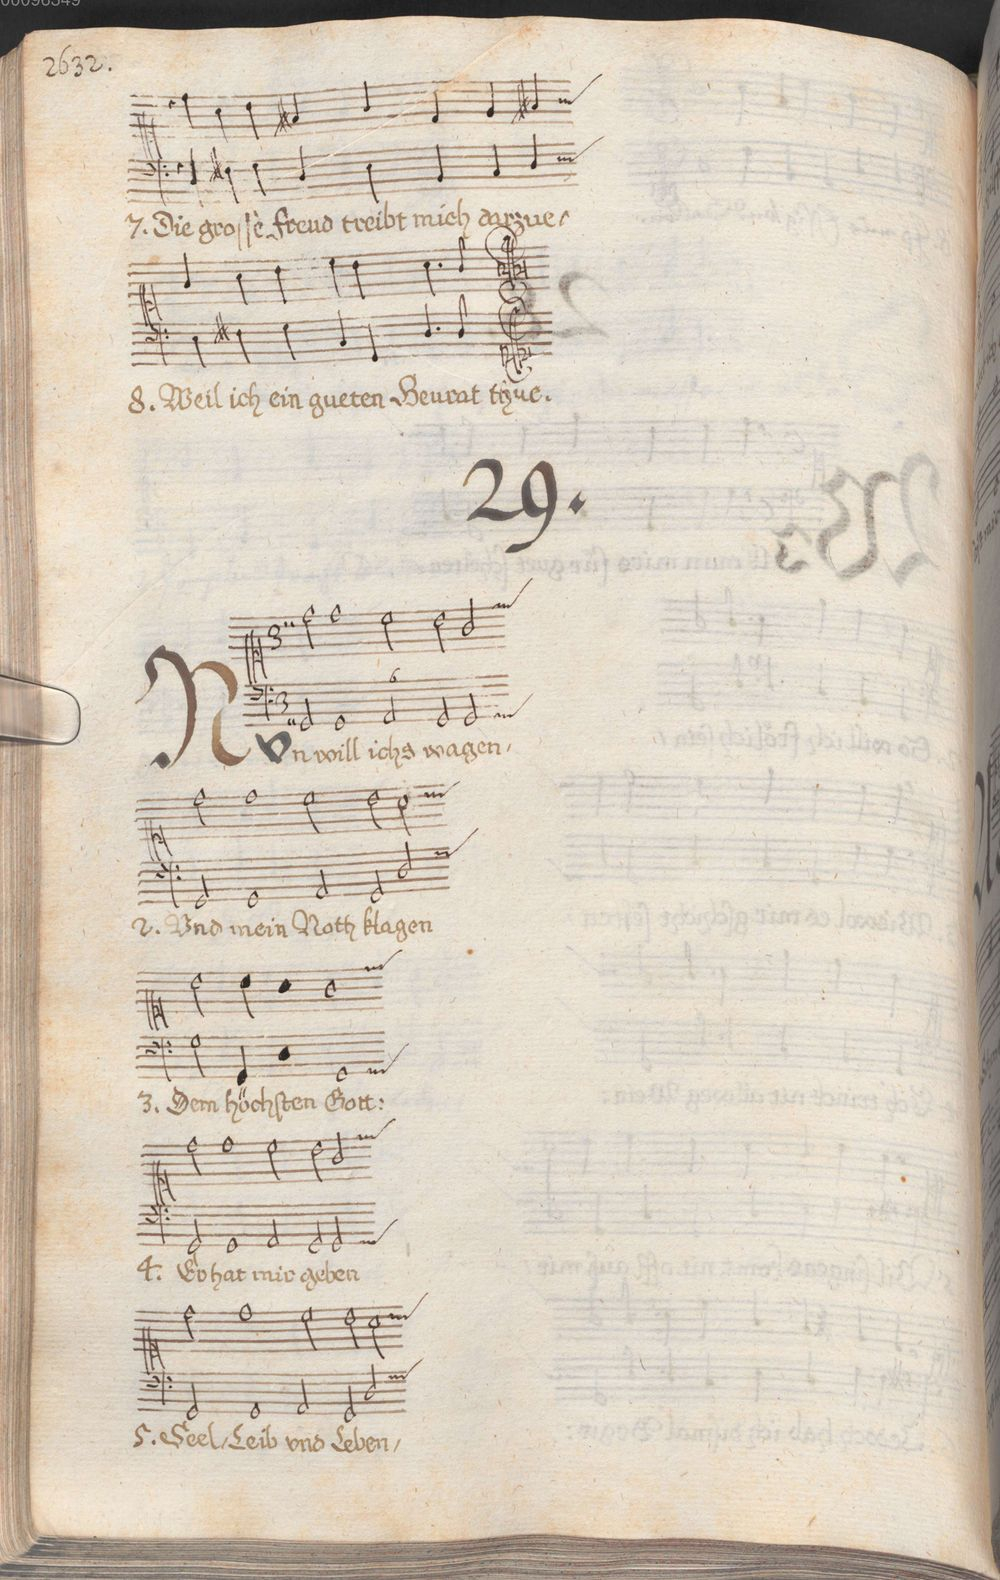 00096349
2632.
7. Die grosse Freud treibt mich darzue,
8. Weil ich ein gueten Heurat thue.
29.
3
6
3
Nvn will ichs wagen,
2. Vnd mein Noth klagen
3. Dem höchsten Gott:
4. Er hat mir geben
5. Seel, Leib vnd Leben,